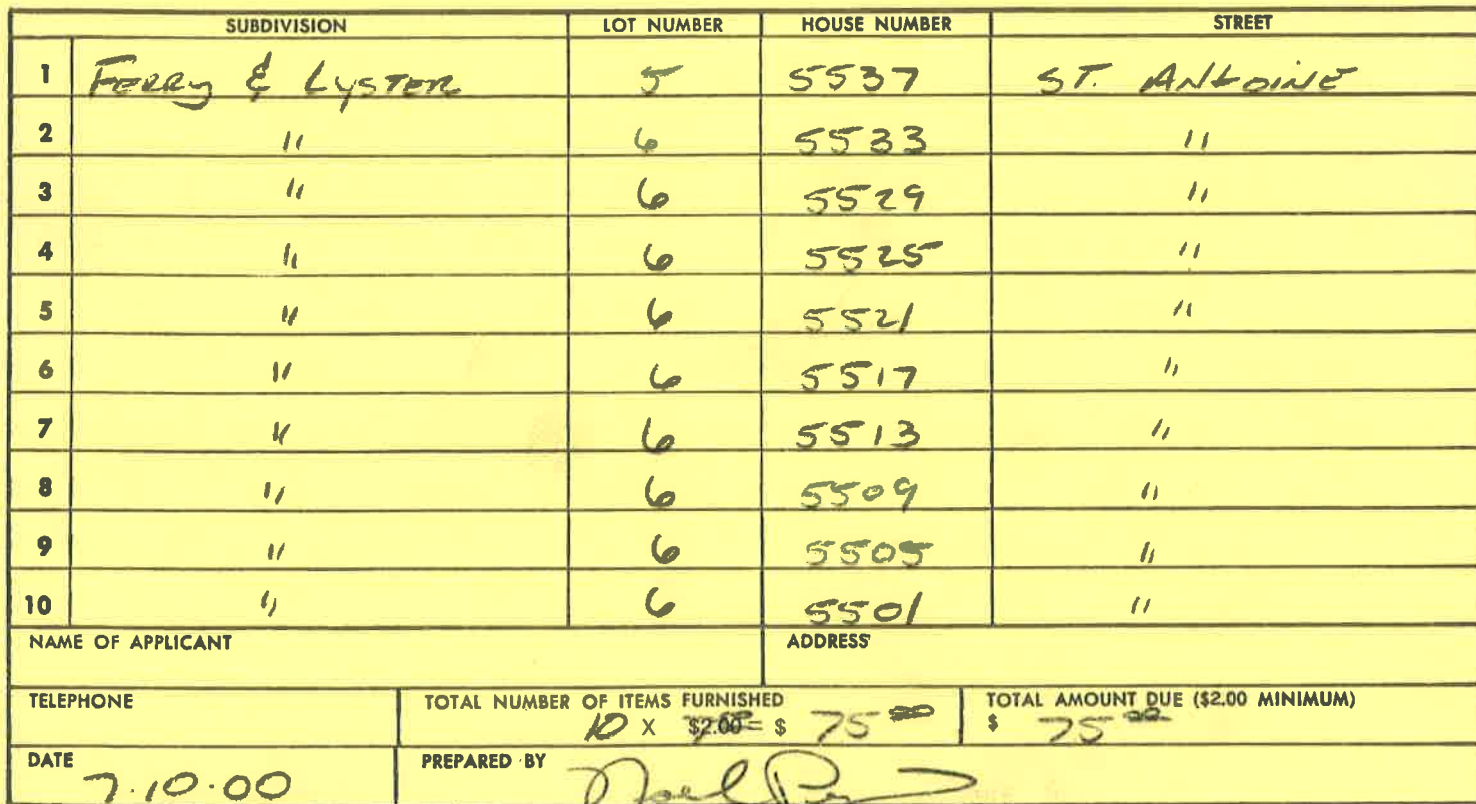 SUBDIVISION LOT NUMBER HOUSE NUMBER STREET
1 FERRY & LYSTER 5 5537 ST. ANTOINE
2 " 6 5533 "
3 " 6 5529 "
4 " 6 5525 "
5 " 6 5521 "
6 " 6 5517 "
7 " 6 5513 "
8 " 6 5509 "
9 " 6 5505 "
10 " 6 5501 "
NAME OF APPLICANT ADDRESS
TELEPHONE TOTAL NUMBER OF ITEMS FURNISHED TOTAL AMOUNT DUE ($2.00 MINIMUM)
10 X $2.00 = $ 75 00 $ 75 00
DATE PREPARED BY
7.10.00 Noel